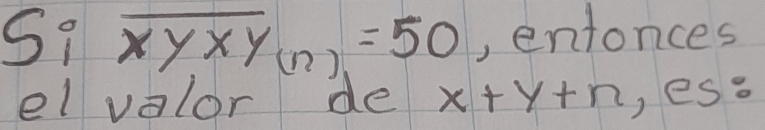 Si $\overline{xyxy}_{(n)}$ = 50, entonces
el valor de x+y+n, es: